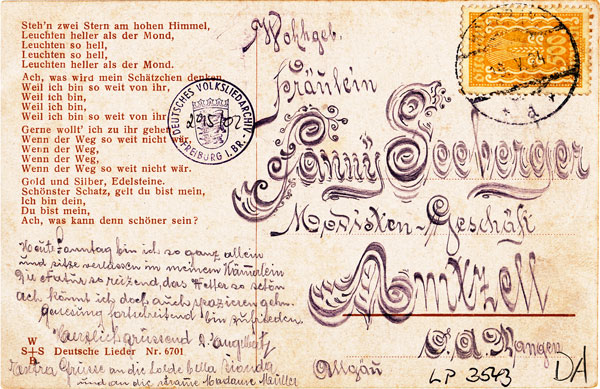 Steh'n zwei Stern am hohen Himmel,
Leuchten heller als der Mond,
Leuchten so hell,
Leuchten so hell,
Leuchten heller als der Mond.
Ach, was wird mein Schätzchen denken,
Weil ich bin so weit von ihr,
Weil ich bin,
Weil ich bin,
Weil ich bin so weit von ihr
Gerne wollt' ich zu ihr gehen
Wenn der Weg so weit nicht wär.
Wenn der Weg,
Wenn der Weg,
Wenn der Weg so weit nicht wär.
Gold und Silber, Edelsteine.
Schönster Schatz, gelt du bist mein,
Ich bin dein,
Du bist mein,
Ach, was kann denn schöner sein?
Heute Sonntag bin ich so ganz allein
und sitze verlassen in meinem Kämerlein
die Natur so reizend, das Wetter so schön
ach könnt ich doch auch spazieren gehn.
Genesung fortschreitend bin zufrieden.
Herzlich grüssend
W
S+S
B
Deutsche Lieder Nr. 6701
Extra Grüsse an die
und an die Madame
DEUTSCHES VOLKSLIEDARCHIV
FREIBURG I. BR.
500
V. 24
* a *
Wohlgeb.
Fräulein
Fanny Seeberger
Modisten-Geschäft
Amtzell
O.A. Wangen
Allgäu
LP 3543
DA